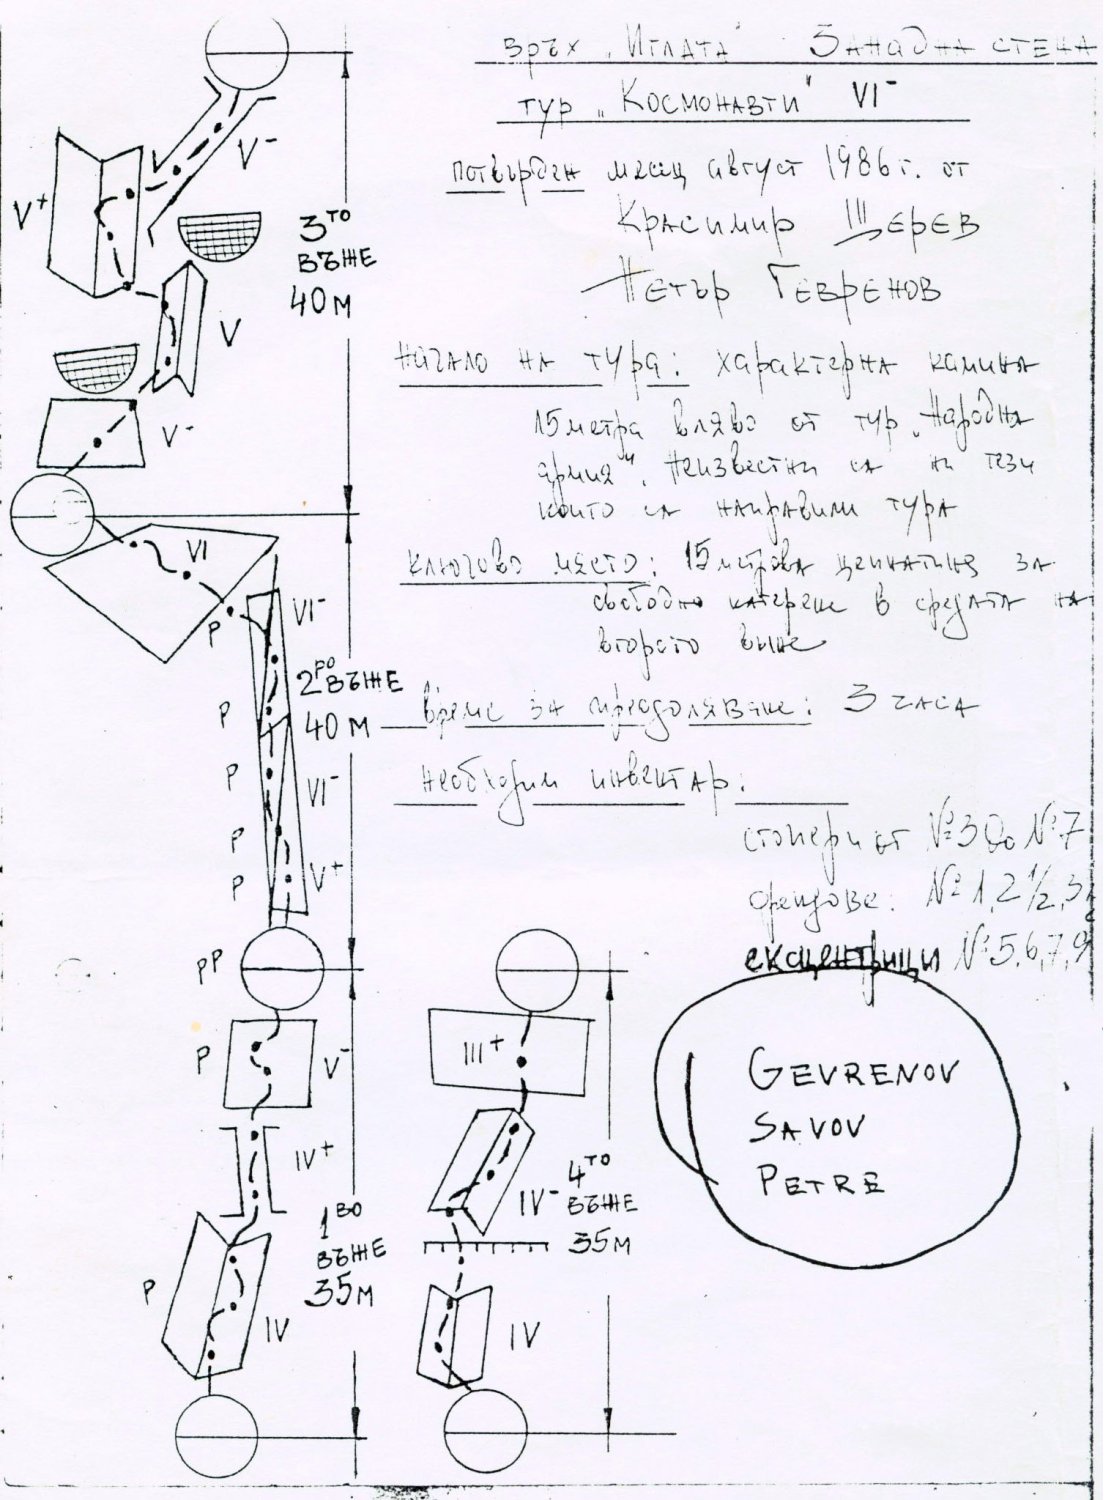 връх „Иглата" Западна стена
тур „Космонавти" VI-
потвърден месец август 1986 г. от
Красимир Щерев
Петър Гевренов
начало на тура: характерна камина
15 метра вляво от тур „Народна
армия". Неизвестни са ни тези
които са направили тура
ключово место: 15 метрова цепнатина за
свободно катерене в средата на
второто въже
време за преодоляване: 3 часа
необходим инвентар:
стопери от №3 до №7
френдове: №1, 2 1/2, 3
ексцентрици №5, 6, 7, 9
GEVRENOV
SAVOV
PETRE
V-
V+
3ТО
ВЪЖЕ
40 м
V
V-
VI
VI-
P
2РО ВЪЖЕ
P
40 м
P
VI-
P
P
V+
PP
P
V-
IV+
1ВО
ВЪЖЕ
35м
P
IV
III+
4ТО
IV- ВЪЖЕ
35м
IV